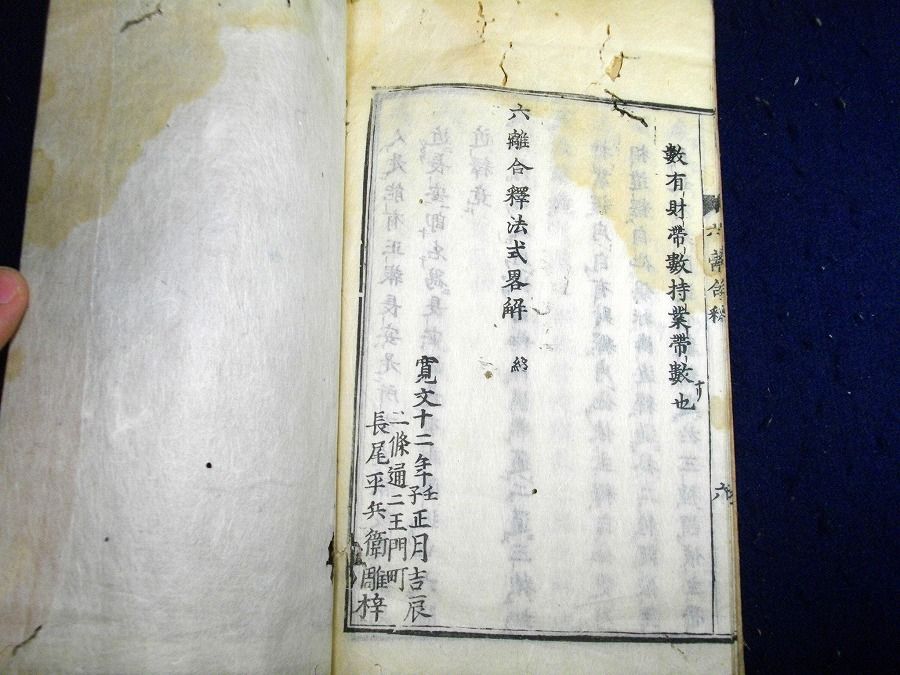 數有財帶數持業帶數也
六離合釋法式畧解 終
寛文十二年壬子正月吉辰
二條通二王門町
長尾平兵衛雕梓
六離合釋
六